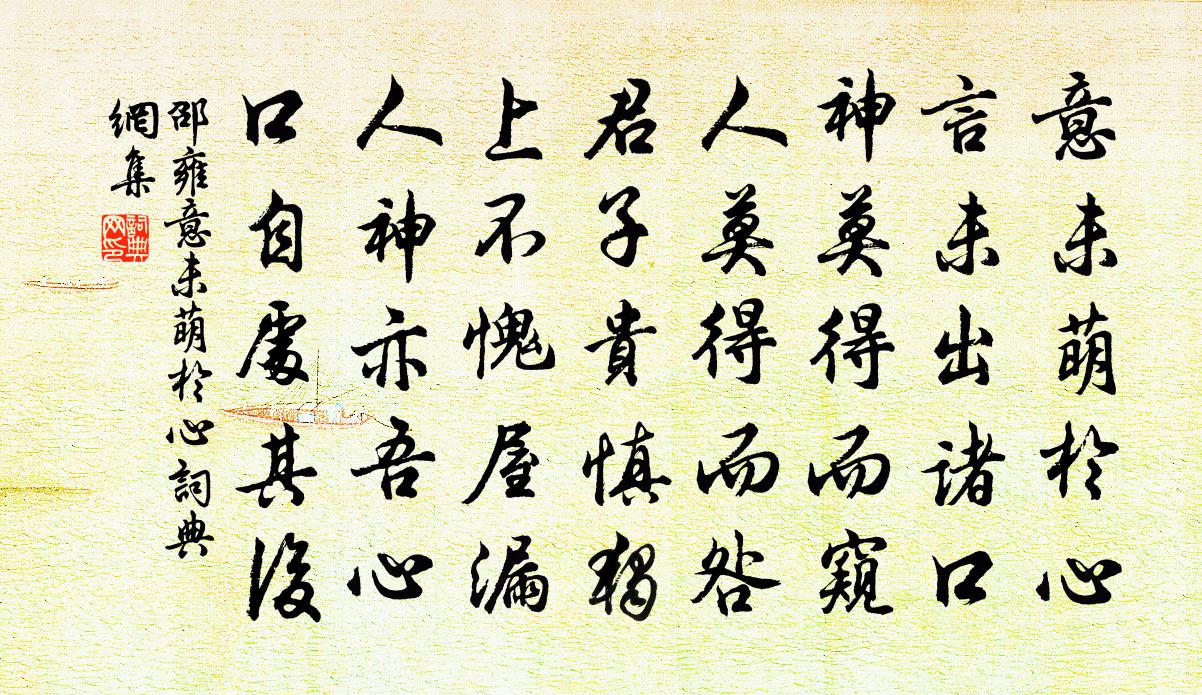 意未萌於心
言未出諸口
神莫得而窺
人莫得而咎
君子貴慎獨
上不愧屋漏
人神亦吾心
口自處其後
邵雍意未萌於心詞典
網集
詞典
网印